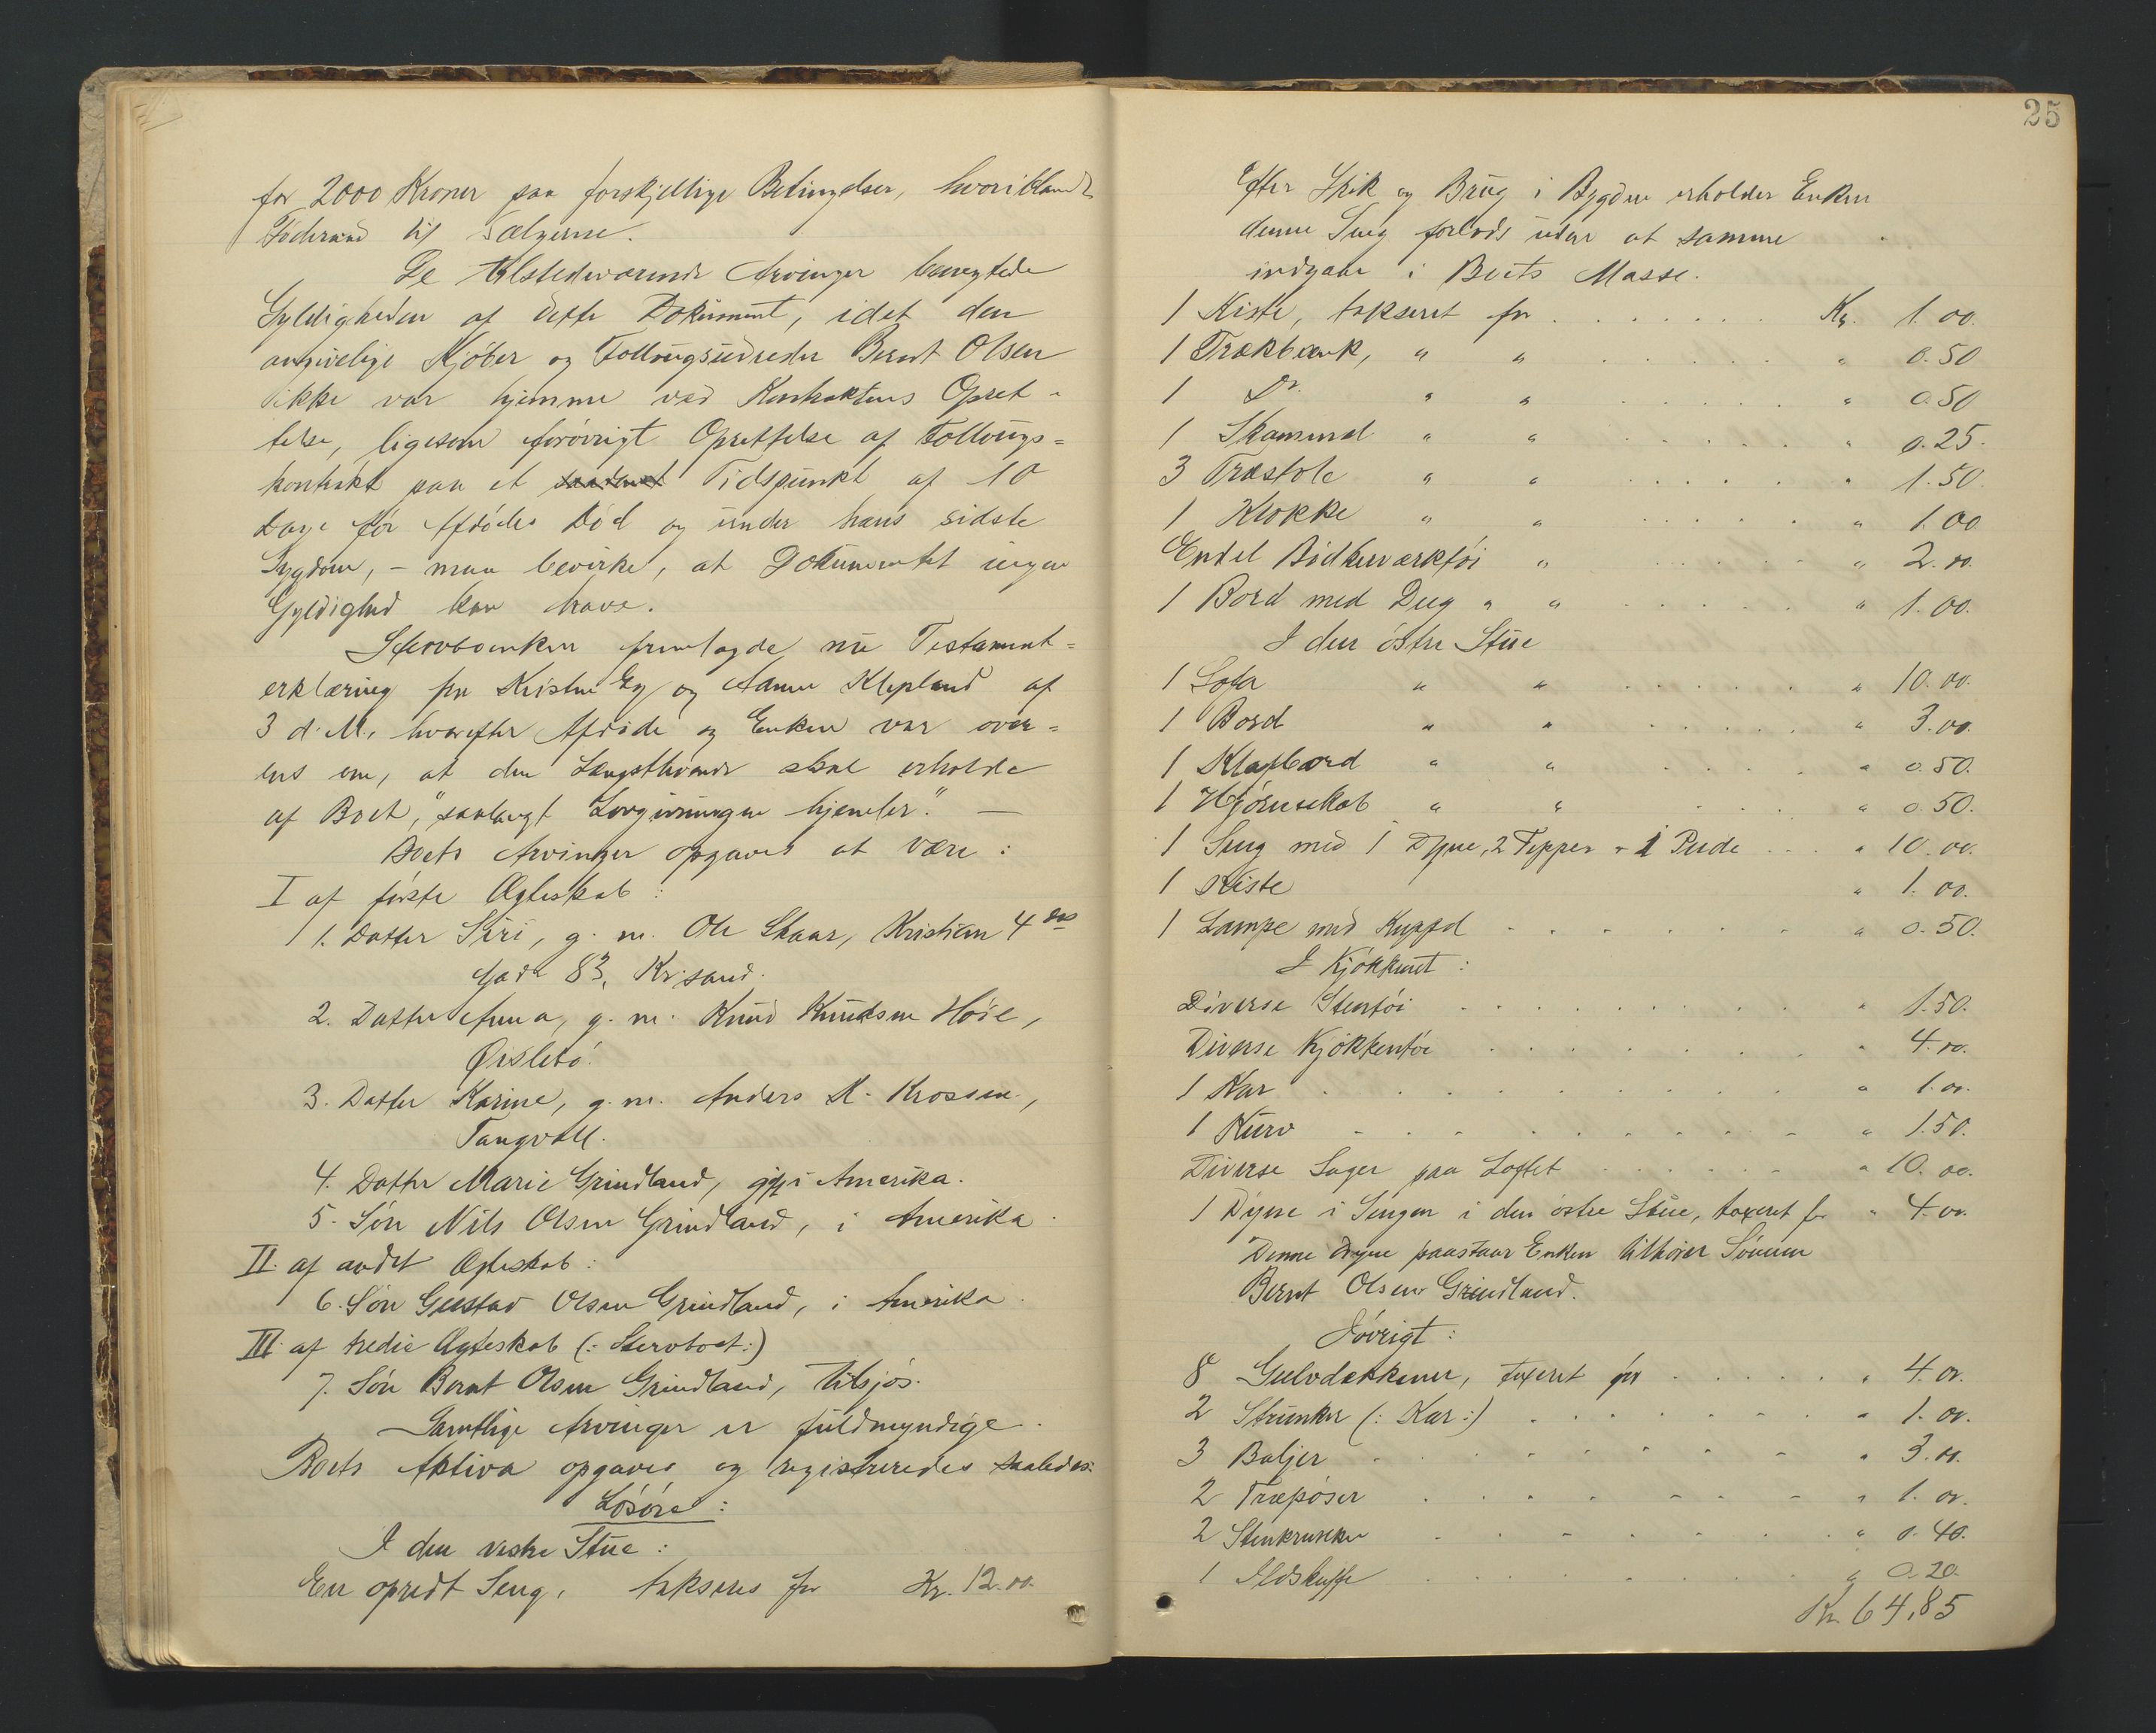 for 2000 Kroner paa forskjellige Betingelser, hvoriblandt
Föderaad til Sælgerne.
De tilstedeværende Arvinger benegtede
Gyldigheden af dette Dokument, idet den
angivelige Kjöber og Follougsudreder Berent Olsen
ikke var hjemme ved Kontraktens Opret-
telse, ligesom forövrigt Oprettelse af Follougs=
kontrakt paa et Tidspunkt af 10
Dage för Afdödes Död og under hans sidste
Sygdom, - maa bevirke, at Dokumentet ingen
Gyldighed kan have.
Stervboenken fremlagde nu Testament=
erklæring fra Kristen Eg og Aanen Klepland af
3 d. M., hvorefter Afdöde og Enken var over=
ens om, at den Længstlevende skal erholde
af Boet, "saalangt Lovgivningen hjemler". —
Boets Arvinger opgaves at være:
I af förste Ægteskab:
1. Datter Siri, g. m. Ole Skaar, Kristian 4 des
Gade 83, Kr.sand.
2. Datter Anna, g. m. Knud Knudsen Höie,
Øislebö.
3. Datter Karine, g. m. Anders K. Krossen,
Tangvall.
4. Datter Marie Grindland, gift i Amerika.
5. Sön Nils Olsen Grindland, i Amerika.
II. af andet Ægteskab:
6. Sön Gustav Olsen Grindland, i Amerika.
III. af tredie Ægteskab (: Stervboet:)
7. Sön Bernt Olsen Grindland, tilsjös.
Samtlige Arvinger er fuldmyndige.
Boets Aktiva opgaves og registreredes saaledes:
Lösöre:
I den vestre Stue:
En opredt Seng, takseres for Kr. 12.00.
25
Efter Skik og Brug i Bygden erholder Enken
denne Seng forlods uden at samme
indgaar i Boets Masse.
1 Kiste, takseret for . . . . . . . Kr. 1.00.
1 Trækbænk, " " . . . . . " 0.50
1 Do. " " . . . . . " 0.50
1 Skammel " " . . . . . " 0.25.
3 Træstole " " . . . . . " 1.50.
1 Klokke " " . . . . . " 1.00
Endel Bödkerværktöi " . . . . . " 2.00.
1 Bord med Dug " " . . . . . " 1.00.
I den östre Stue
1 Sofa " " . . . . . " 10.00.
1 Bord " " . . . . . " 3.00.
1 Klapbord " " . . . . " 0.50.
1 Hjörneskab " " . . . " 0.50.
1 Seng med 1 Dyne, 2 Tepper + 1 Pude . . . " 10.00.
1 Kiste " 1.00.
1 Lampe med Kuppel . . . . . . . " 0.50.
I Kjökkenet:
Diverse Stentöi . . . . . . . . " 1.50.
Diverse Kjökkentöi . . . . . . . " 4.00.
1 Kar . . . . . . . . . . " 1.00.
1 Kurv . . . . . . . . . . " 1.50.
Diverse Sager paa Loftet . . . . . . " 10.00.
1 Dyne i Sengen i den östre Stue, taxeret for " 4.00.
Denne Dyne paastaar Enken tilhörer Sönnen
Bernt Olsen Grindland.
Iövrigt:
8 Gulvdækkener, taxeret for . . . . . . " 4.00.
2 Strunker (: Kar:) . . . . . . . . " 1.00.
3 Baljer . . . . . . . . " 3.00.
2 Træpöser . . . . . . . . " 1.00.
2 Stenkrukker . . . . . . . . " 0.40.
1 Ildskuffe . . . . . . . . " 0.20.
Kr. 64,85